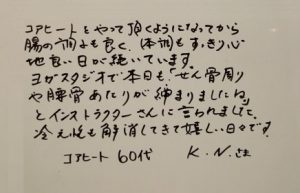 コアヒートをやって頂くようになってから
腸の調子も良く、体調もすっきり心
地良い日が続いています。
ヨガスタジオで本日も「せん骨周り
や腰骨あたりが締まりましたね」
とインストラクターさんに言われました。
冷え性も解消してきて嬉しい日々です。
コアヒート 60代 K.N.さま